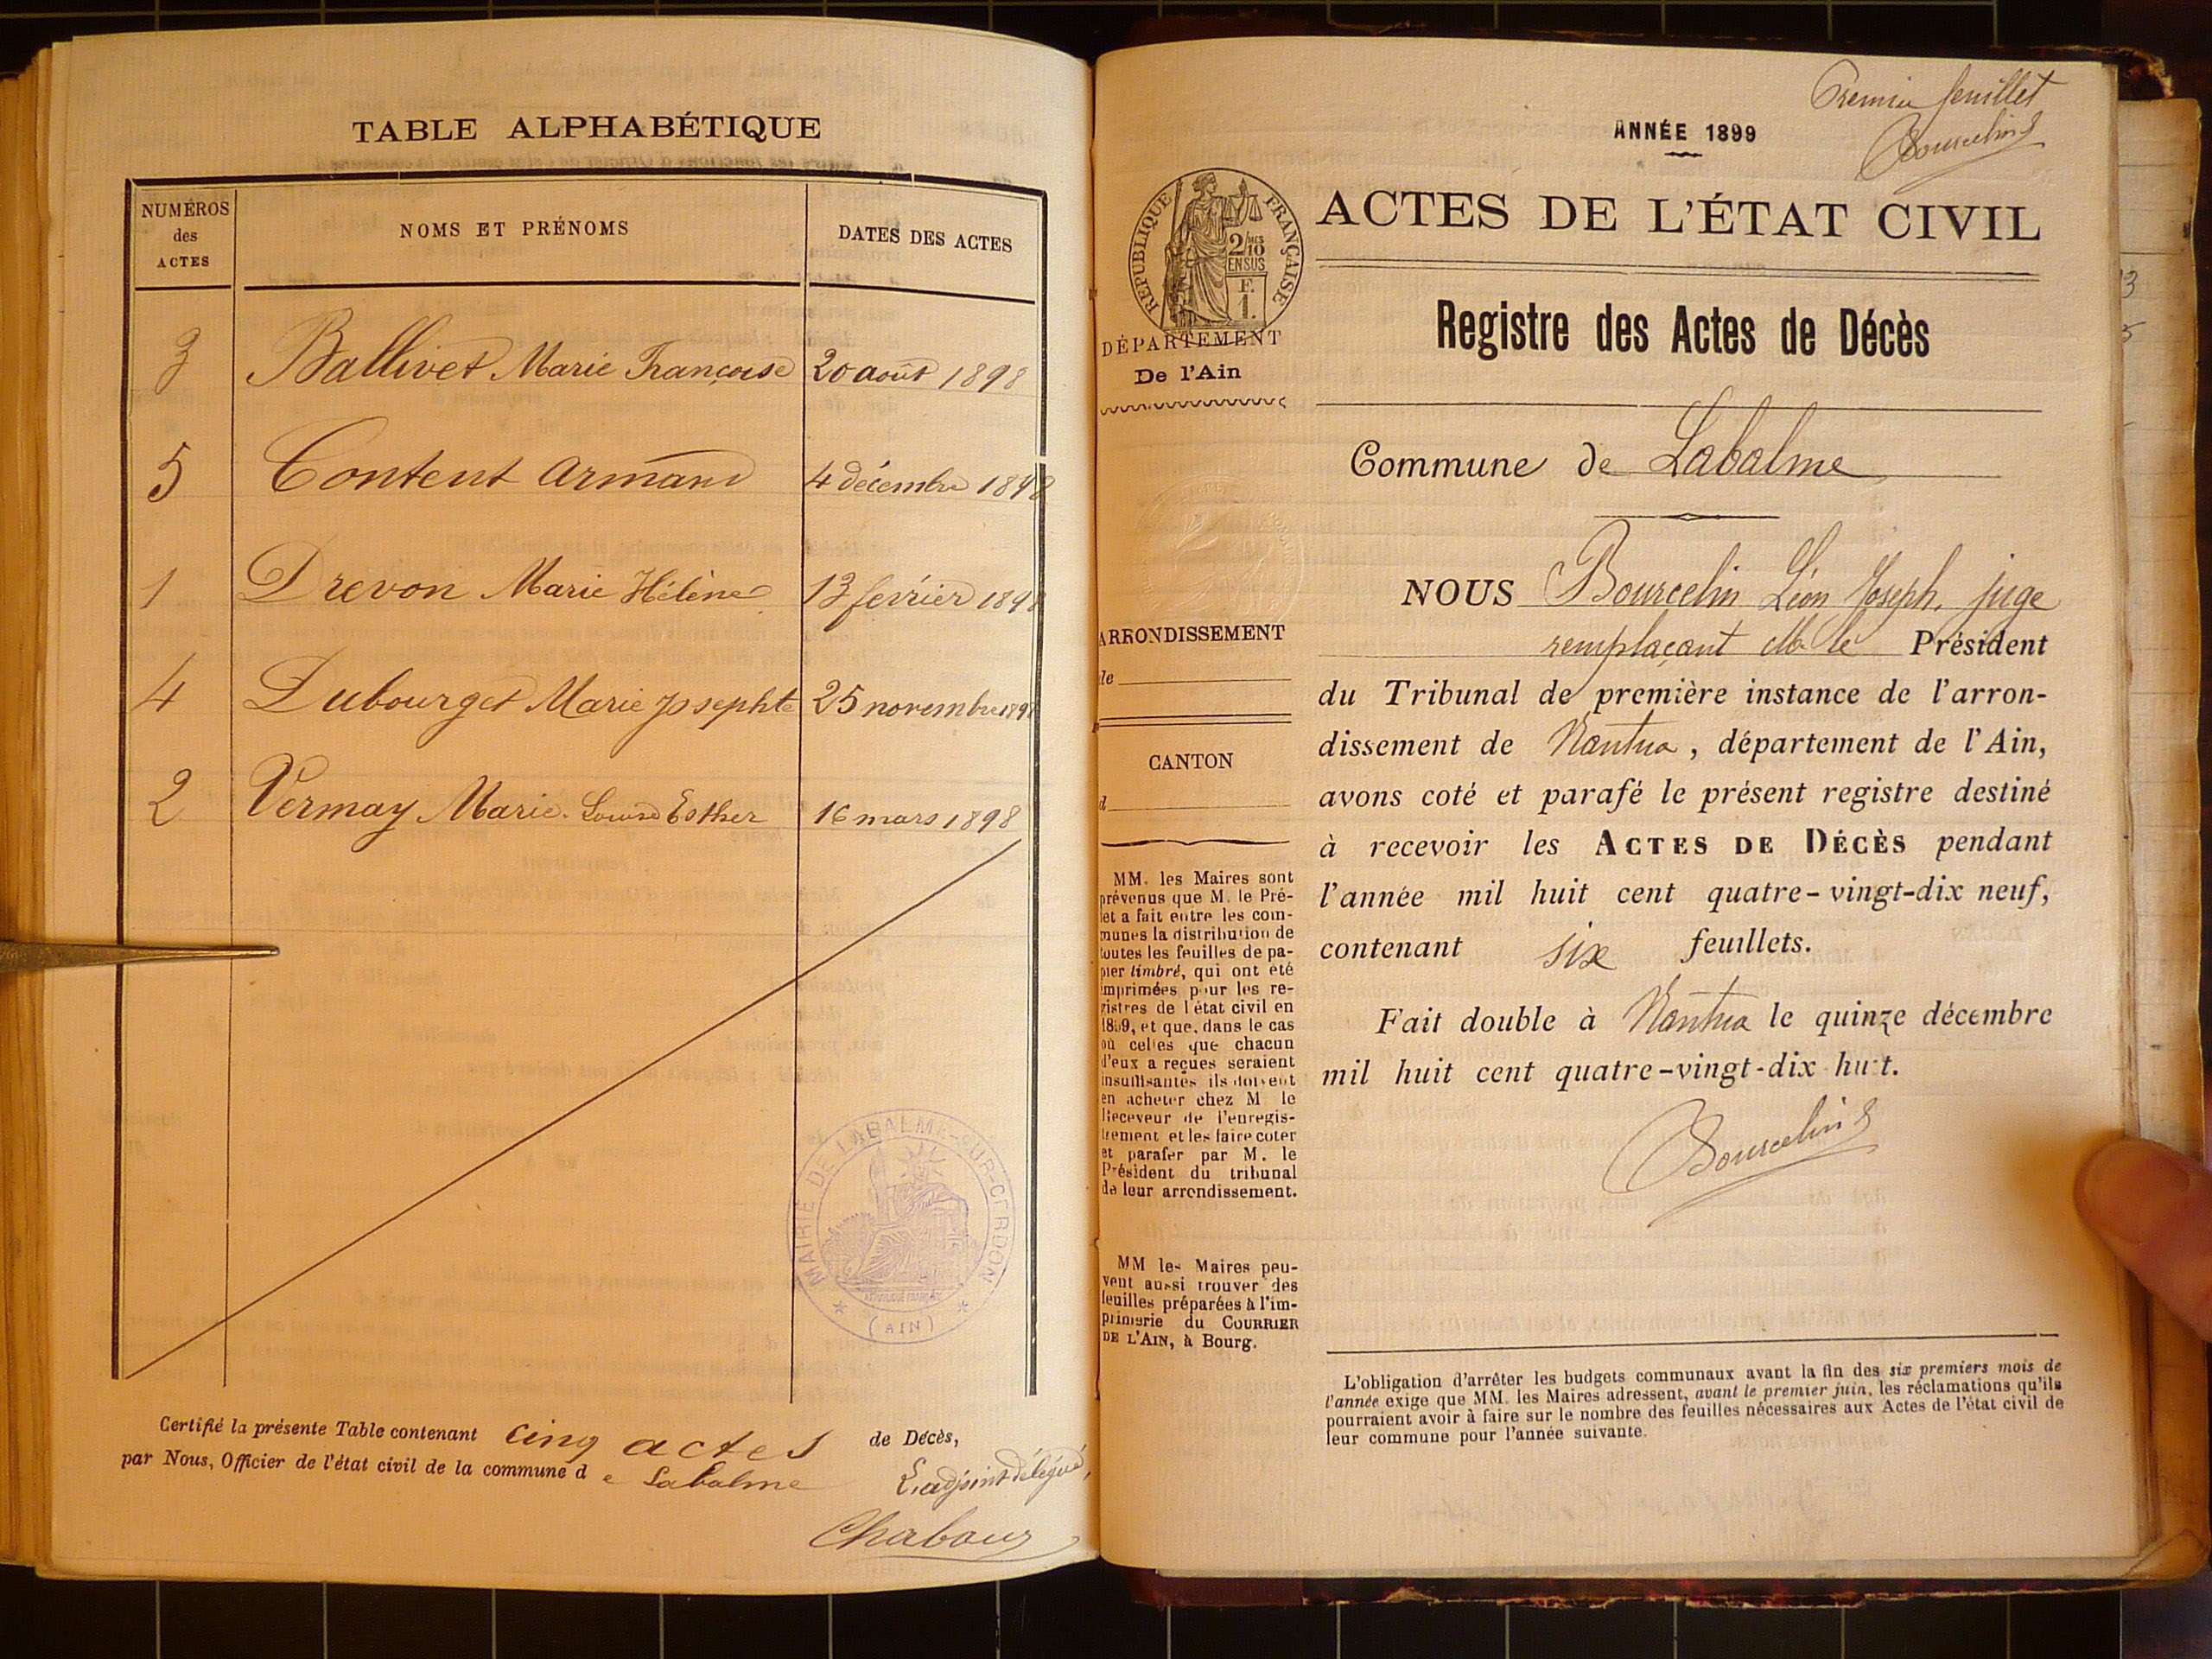 TABLE ALPHABÉTIQUE
NUMÉROS
des
ACTES
NOMS ET PRÉNOMS
DATES DES ACTES
3 Ballivet Marie Françoise 20 août 1898
5 Content Armand 4 décembre 1898
1 Drevon Marie Hélène 13 février 1898
4 Dubourget Marie Josephte 25 novembre 1898
2 Vermay Marie Louise Esther 16 mars 1898
MAIRIE DE LABALME-SUR-CERDON
(AIN)
Certifié la présente Table contenant cinq actes de Décès,
par Nous, Officier de l'état civil de la commune de Labalme
L'adjoint délégué,
Premier feuillet
Bourcelin
ANNÉE 1899
RÉPUBLIQUE FRANÇAISE
2/10
EN SUS
F.
1.
ACTES DE L'ÉTAT CIVIL
DÉPARTEMENT
De l'Ain
Registre des Actes de Décès
Commune de Labalme
ARRONDISSEMENT
CANTON
MM. les Maires sont
prévenus que M. le Pré-
fet a fait entre les com-
munes la distribution de
toutes les feuilles de pa-
pier timbré, qui ont été
imprimées pour les re-
gistres de l'état civil en
1899, et que, dans le cas
où celles que chacun
d'eux a reçues seraient
insuffisantes ils doivent
en acheter chez M le
Receveur de l'enregis-
trement et les faire coter
et parafer par M. le
Président du tribunal
de leur arrondissement.
MM les Maires peu-
vent aussi trouver des
feuilles préparées à l'im-
primerie du COURRIER
DE L'AIN, à Bourg.
NOUS Bourcelin Léon Joseph, juge
remplaçant M. le Président
du Tribunal de première instance de l'arron-
dissement de Nantua, département de l'Ain,
avons coté et parafé le présent registre destiné
à recevoir les ACTES DE DÉCÈS pendant
l'année mil huit cent quatre-vingt-dix neuf,
contenant six feuillets.
Fait double à Nantua le quinze décembre
mil huit cent quatre-vingt-dix huit.
Bourcelin
L'obligation d'arrêter les budgets communaux avant la fin des six premiers mois de
l'année exige que MM. les Maires adressent, avant le premier juin, les réclamations qu'ils
pourraient avoir à faire sur le nombre des feuilles nécessaires aux Actes de l'état civil de
leur commune pour l'année suivante.